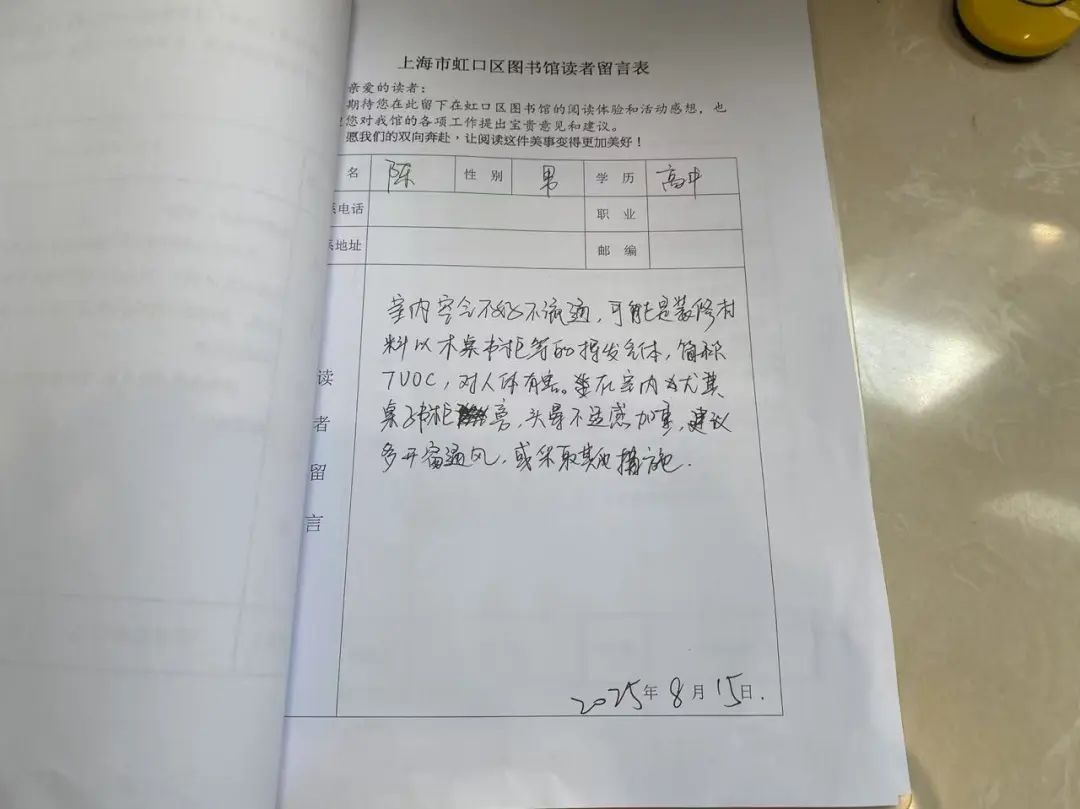 上海市虹口区图书馆读者留言表
亲爱的读者：
期待您在此留下在虹口区图书馆的阅读体验和活动感想，也
您对我馆的各项工作提出宝贵意见和建议。
愿我们的双向奔赴，让阅读这件美事变得更加美好！
名 陈 性 别 男 学 历 高中
电话 职 业
地址 邮 编
读者留言
室内空气不好不流通，可能是装修材
料以木桌书柜等的挥发气体，简称
TVOC，对人体有害。坐在室内尤其
桌子书柜旁，头晕不适感加重，建议
多开窗通风，或采取其他措施.
2025年8月15日.